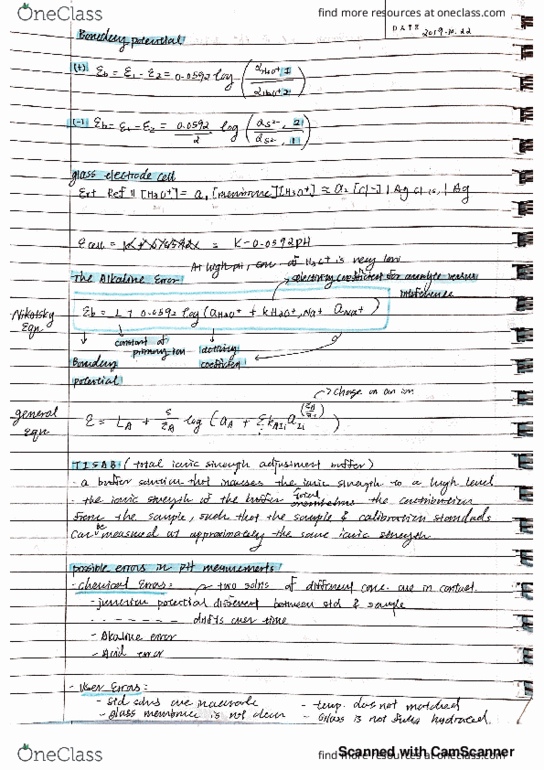 OneClass
find more resources at oneclass.com
DATE 2019.10.22
Boundary potential
(+) Eb = E1 - E2 = 0.0592 log (aH3O+ 1 / aH3O+ 2)
(-) Eb = E1 - E2 = 0.0592/2 log (aS2-, 2 / aS2-, 1)
glass electrode cell
Ext Ref || [H3O+] = a1 [membrane] [H3O+] = a2 [Cl-] | AgCl (s) | Ag
Ecell = = K - 0.0592 pH
At high pH, conc of H3O+ is very low
The Alkaline Error
selectivity coefficient for analyte versus interference
Nikolsky Eqn
Eb = L + 0.0592 log (aH3O+ + kH3O+, Na+ aNa+)
constant of primary ion
coefficient
Boundary potential
charge on an ion
general Eqn
E = LA + s/zA log (aA + Σ kAIi aIi (zA/zi))
TISAB (total ionic strength adjustment buffer)
- a buffer solution that increases the ionic strength to a high level
- the ionic strength of the buffer the contribution
from the sample, such that the sample & calibration standards
can be measured at approximately the same ionic strength
possible errors in pH measurements
- chemical Errors: two solns of different conc. are in contact.
- junction potential different between std & sample
- - - - - - - drifts over time
- Alkaline error
- Acid error
- User Errors:
- std solns are inaccurate
- temp. does not matched
- glass membrane is not clean
- Glass is not fully hydrated.
OneClass
find more resources at oneclass.com
Scanned with CamScanner